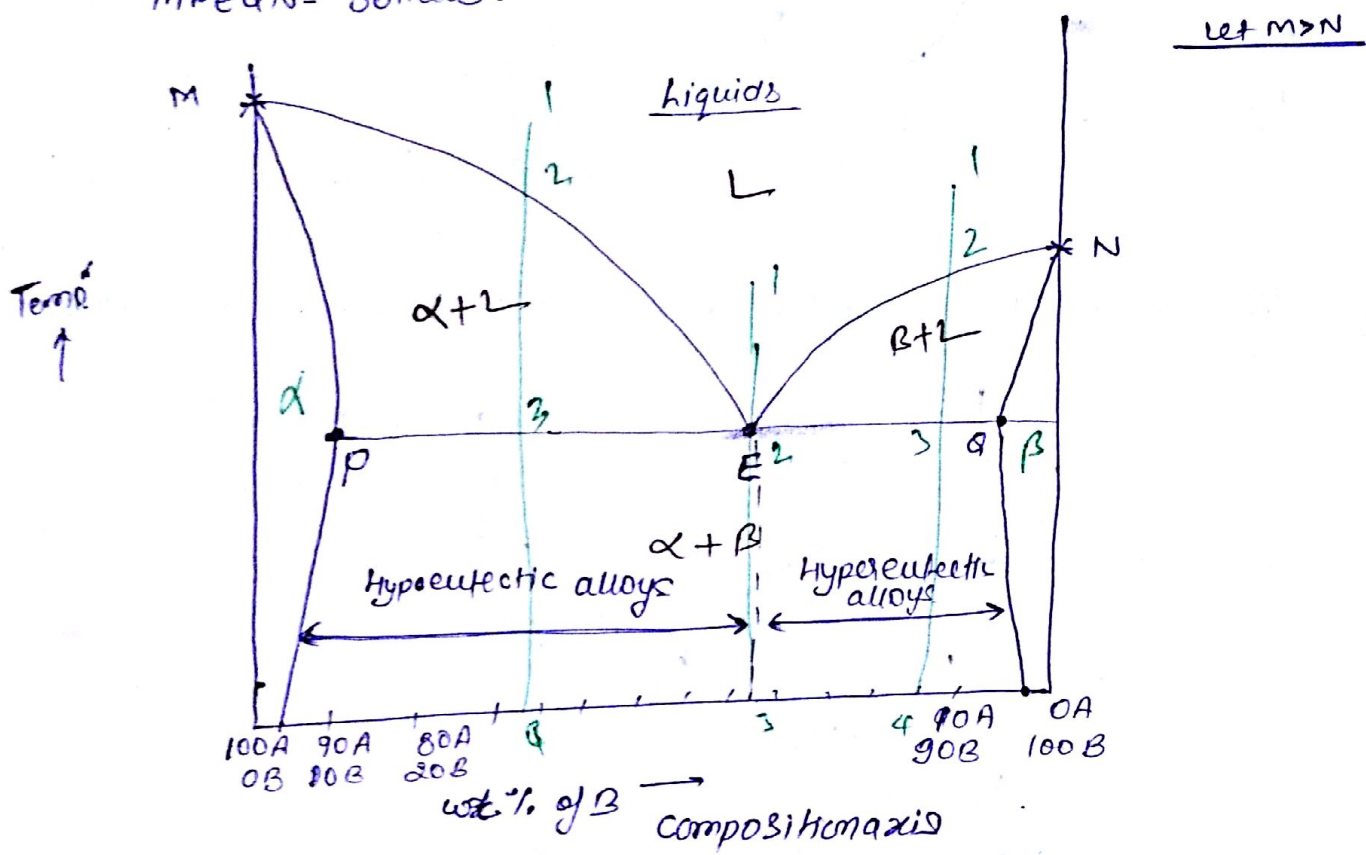 MPEQN=
Let M>N
M
Liquids
1
2
L
1
2
N
Temp.
↑
α+L
1
β+L
α
3
P
E 2
3
Q
β
α + β
Hypoeutectic alloys
Hypereutectic
alloys
100A
0B
90A
10B
80A
20B
3
4
10A
90B
0A
100B
wt % of B →
Composition axis